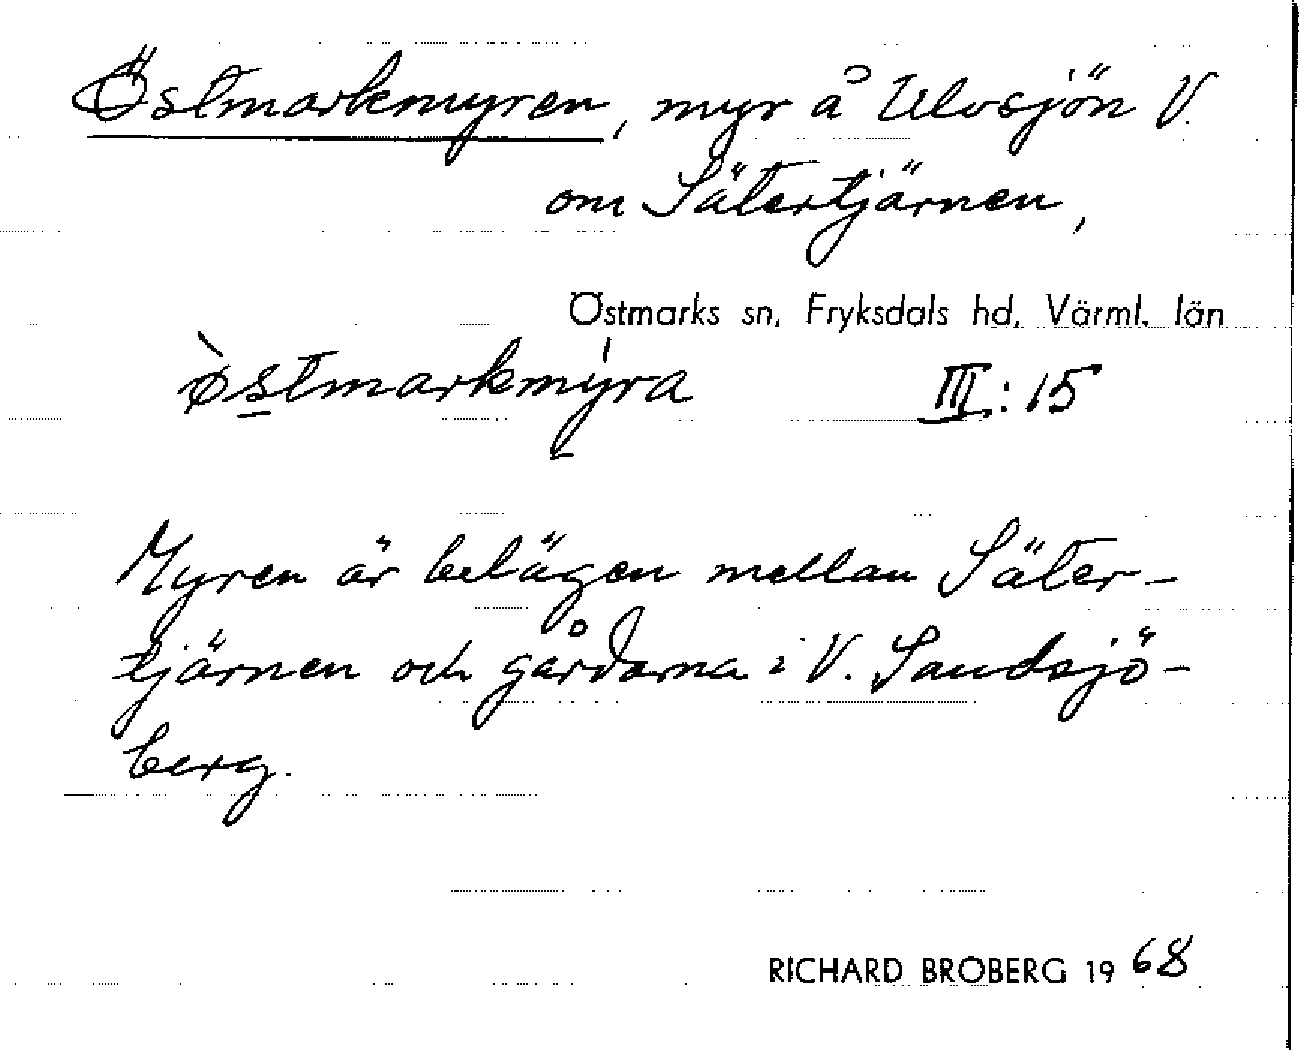 Östmarkmyren, myr å Ulvsjön V.
om Sätertjärnen,
Östmarks sn, Fryksdals hd, Värml. län
ø̀stmarkmýra III:15
Myren är belägen mellan Säter-
tjärnen och gårdarna i V. Sandsjö-
berg.
RICHARD BROBERG 1968